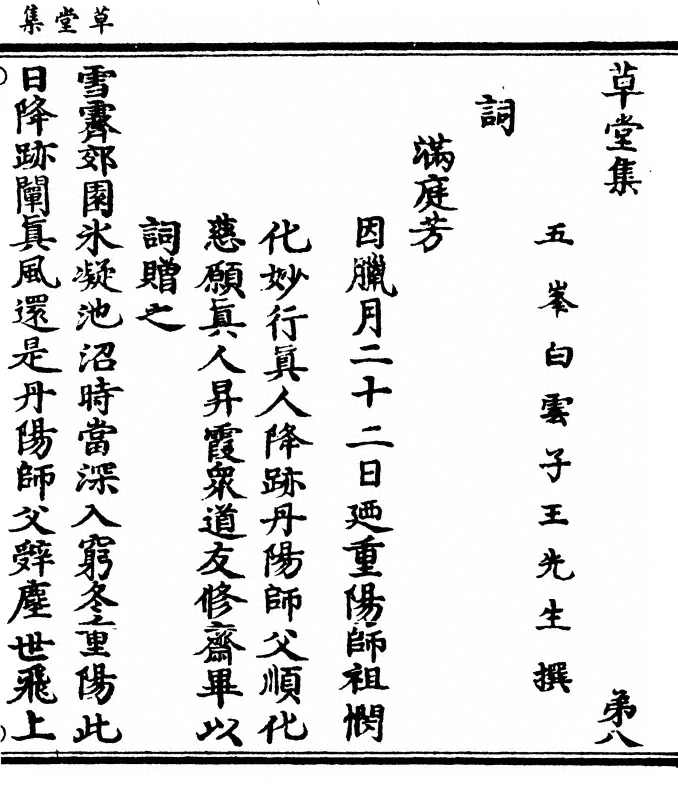 草堂集
草堂集　第八
五峯白雲子王先生撰
詞
滿庭芳
因臘月二十二日廼重陽師祖憫
化妙行眞人降跡丹陽師父順化
慈願眞人昇霞衆道友修齋畢以
詞贈之
雪霽郊園氷凝池沼時當深入窮冬重陽此
日降跡闡眞風還是丹陽師父辭塵世飛上